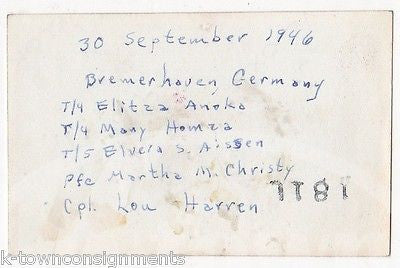 30 September 1946
Bremerhaven Germany
T/4 Elitza Anoka
T/4 Mary Homza
T/5 Elvera S. Aissen
Pfc Martha M. Christy
Cpl. Lou Harren
1811
k-townconsignments